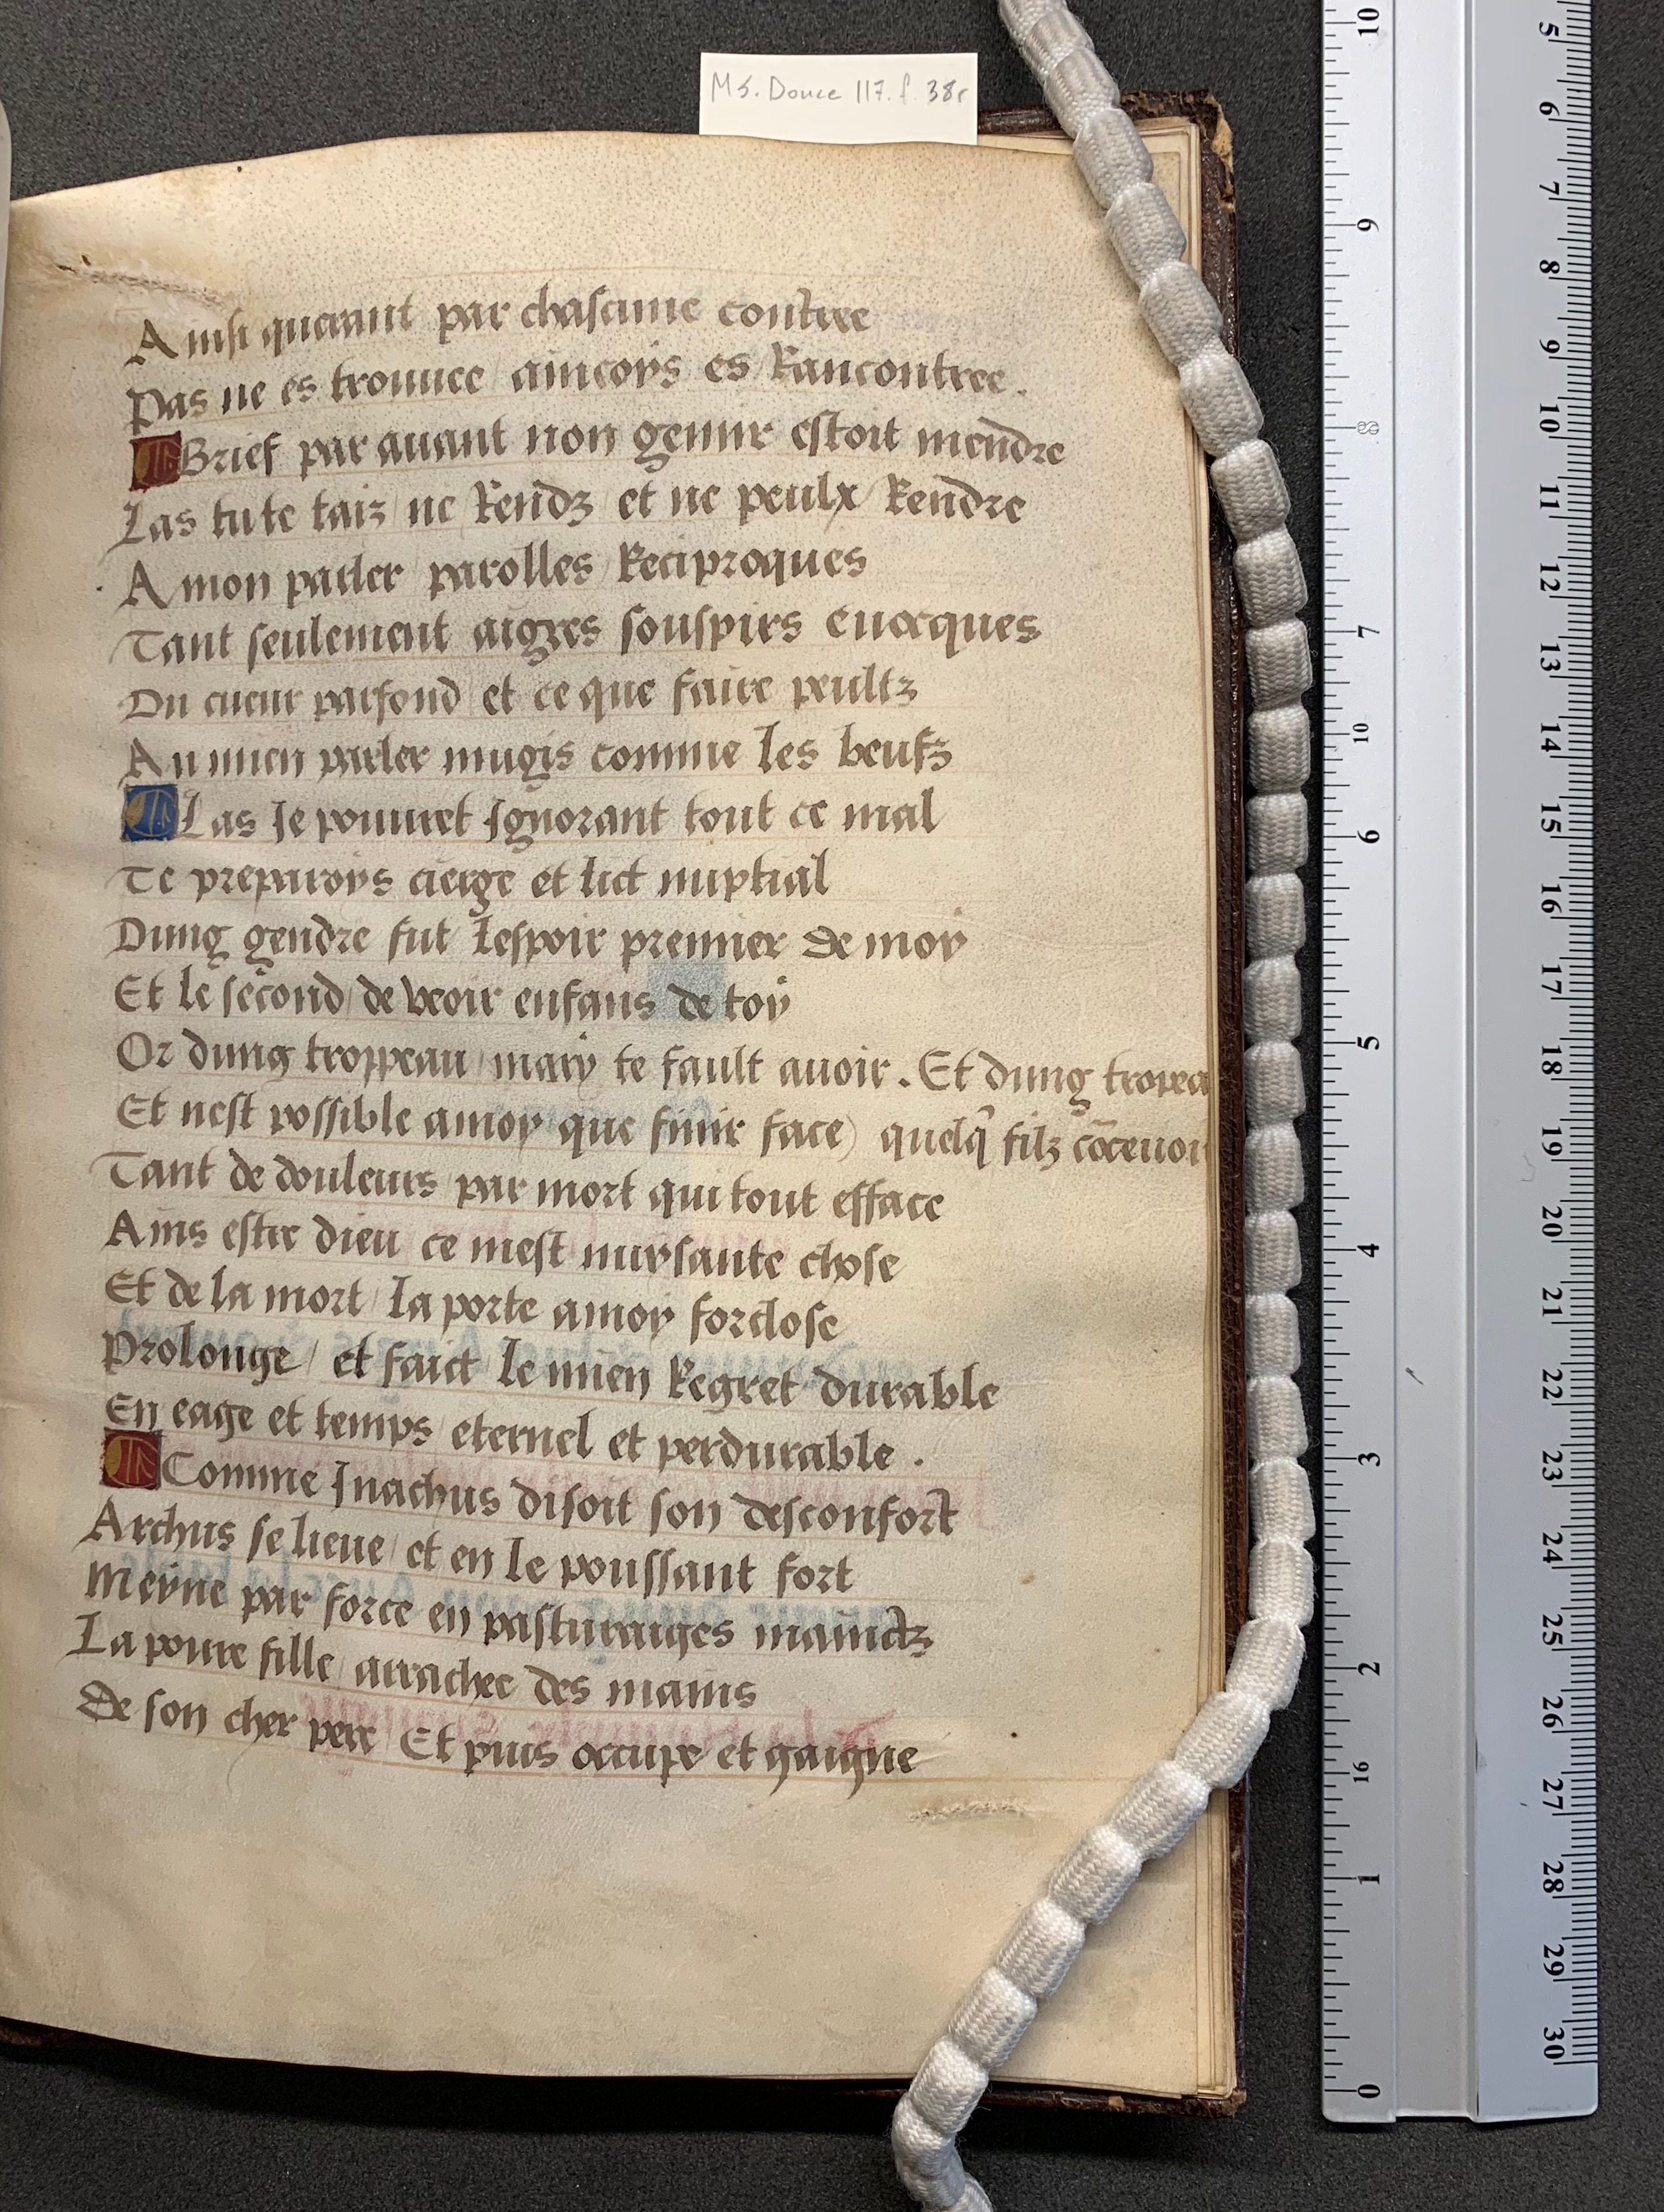 MS. Douce 117. f. 38r
Ainsi querant par chascune contree
Pas ne es trouuee aincoys es Rancontree.
Brief par auant non gemir estoit mendre
Las tu te taiz ne Rendz et ne peulx Rendre
A mon parler parolles Reciproques
Tant seulement aigres souspirs euocques
Du cueur parfond et ce que faire peultz
Au mien parler mugis comme les beufz
Las Je pouuret Ignorant tout ce mal
Te preparoys cierge et lict nuptial
Dung gendre fut Lespoir premier de moy
Et le second de veoir enfans de toy
Or dung troppeau mary te fault auoir. Et dung tropea
Et nest possible a moy que finir face) quelq̃ filz cõceuoir
Tant de douleurs par mort qui tout efface
Ains estre dieu ce mest nuysante chose
Et de la mort La porte a moy forclose
Prolonge et faict Le mien Regret durable
En eage et temps eternel et perdurable.
Comme Inachus disoit son desconfort
Archus se lieue et en Le poussant fort
Meyne par force en pasturaiges mainctz
La poure fille arrachee des mains
De son cher pere Et puis occupe et gaigne
10
9
8
7
10
6
5
4
3
2
16
1
0
5
6
7
8
9
10
11
12
13
14
15
16
17
18
19
20
21
22
23
24
25
26
27
28
29
30